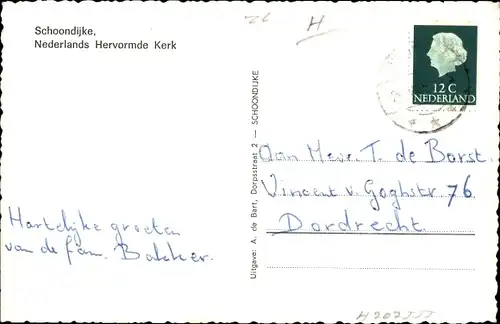 Schoondijke,
Nederlands Hervormde Kerk
H
12 C
NEDERLAND
Uitgave: A. de Bart, Dorpsstraat 2 — SCHOONDIJKE
Aan Mevr. T. de Borst.
Vincent v. Goghstr 76
Dordrecht.
Hartelijke groeten
van de fam. Bakker.